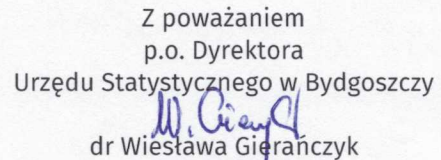 Z poważaniem
p.o. Dyrektora
Urzędu Statystycznego w Bydgoszczy
W. Gierańczyk
dr Wiesława Gierańczyk